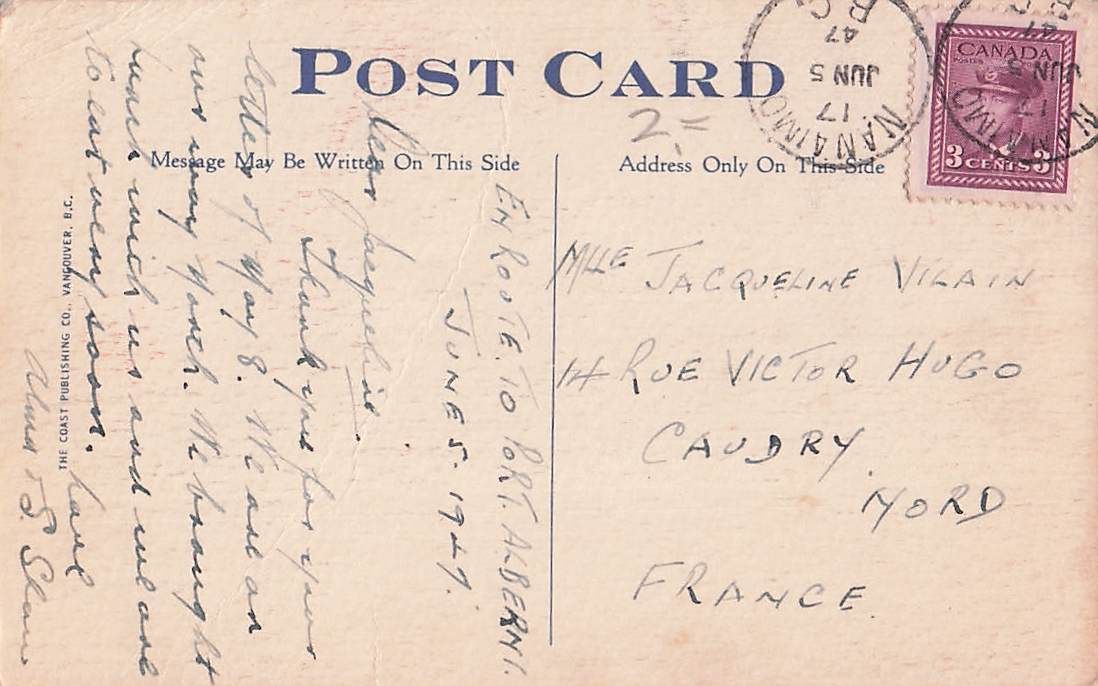 POST CARD
Message May Be Written On This Side
Address Only On This Side
EN ROUTE. TO PORT. ALBERNI.
JUNE 5. 1947.
Dear Jacqueline.
Thank you for your
letter of May 8. We are on
our way North. We brought
lunch with us and will have
to eat very soon.
Love
Alma & S.
THE COAST PUBLISHING CO., VANCOUVER, B.C.
2=
NANAIMO
17
JUN 5
47
B.C.
NANAIMO
17
JUN 5
47
CANADA
POSTES POSTAGE
3 CENTS 3
MLLE JACQUELINE VILAIN
14 RUE VICTOR HUGO
CAUDRY.
NORD
FRANCE.